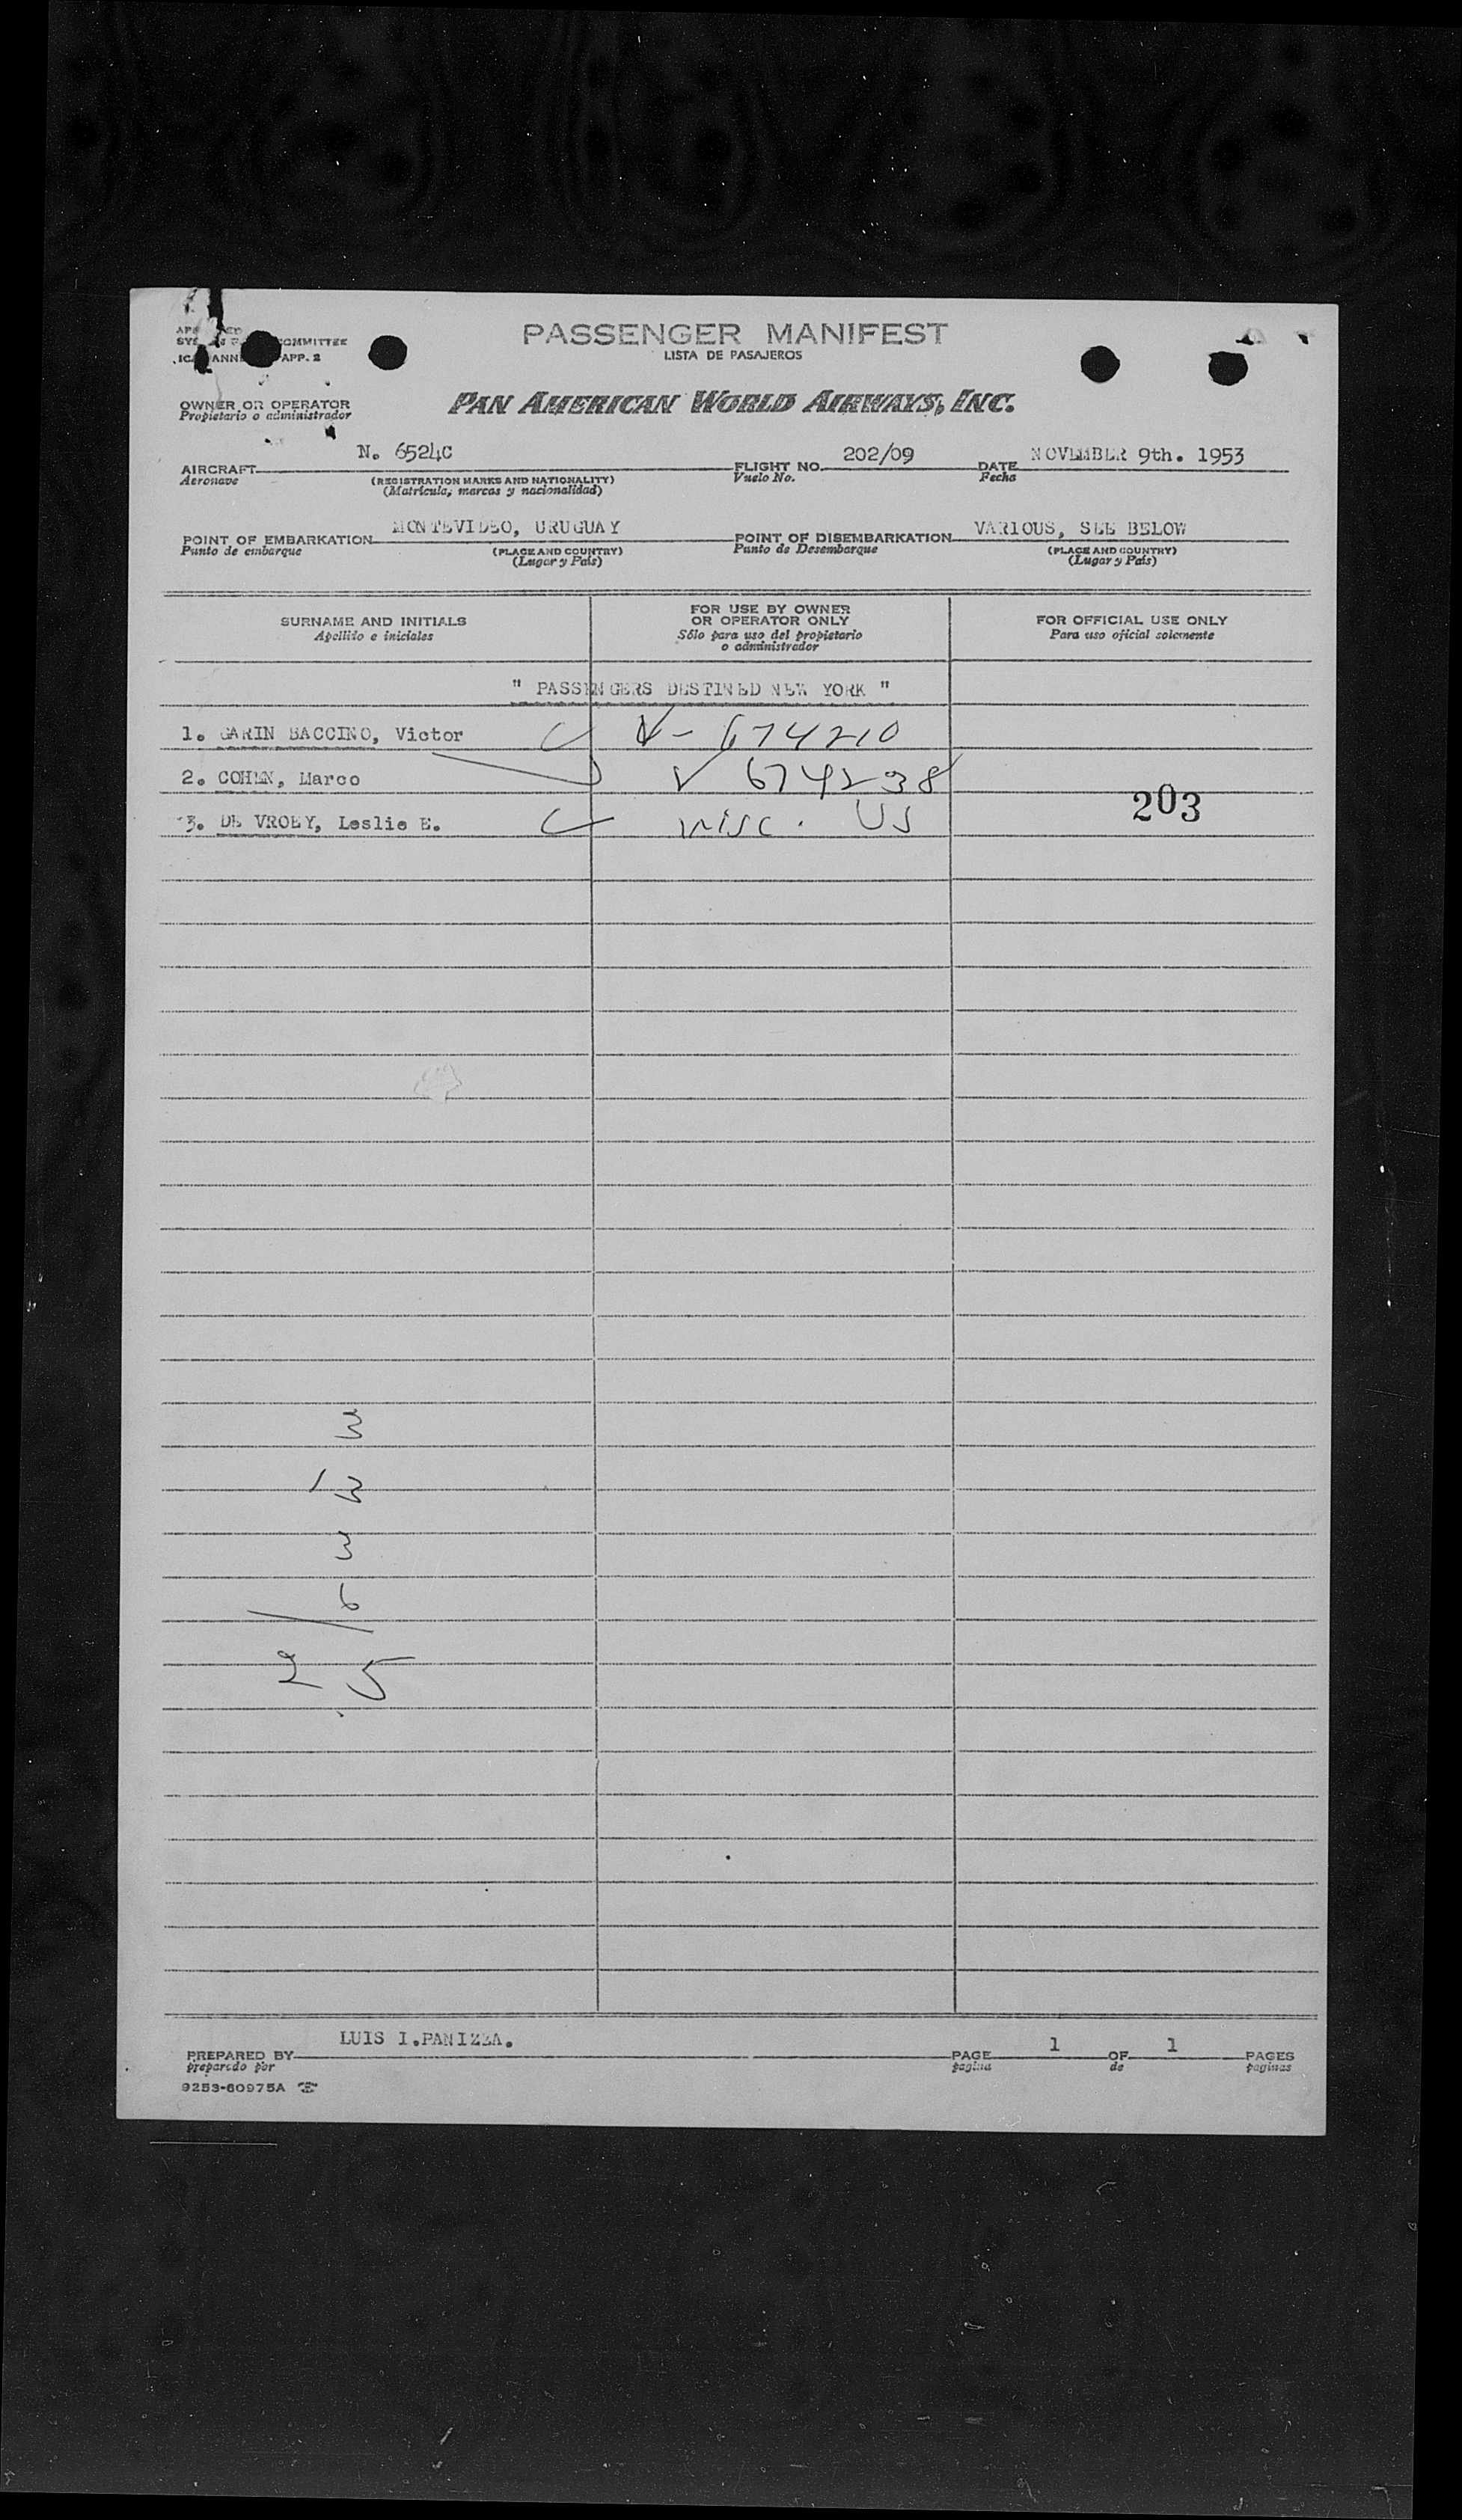 PASSENGER MANIFEST
LISTA DE PASAJEROS
COMMITTEE
APP. 2
OWNER OR OPERATOR
Propietario o administrador
PAN AMERICAN WORLD AIRWAYS, INC.
AIRCRAFT N. 6524C FLIGHT NO. 202/09 DATE NOVEMBER 9th. 1953
Aeronave (REGISTRATION MARKS AND NATIONALITY) Vuelo No. Fecha
(Matrícula, marcas y nacionalidad)
POINT OF EMBARKATION MONTEVIDEO, URUGUAY POINT OF DISEMBARKATION VARIOUS, SEE BELOW
Punto de embarque (PLACE AND COUNTRY) Punto de Desembarque (PLACE AND COUNTRY)
(Lugar y País) (Lugar y País)
SURNAME AND INITIALS
Apellido e iniciales
FOR USE BY OWNER
OR OPERATOR ONLY
Sólo para uso del propietario
o administrador
FOR OFFICIAL USE ONLY
Para uso oficial solemente
" PASSENGERS DESTINED NEW YORK "
1. GARIN BACCINO, Victor V- 674210
2. COHEN, Marco V 674238
3. DE VROEY, Leslie E. misc. US
203
3
3
3
6
25
PREPARED BY LUIS I.PANIZZA. PAGE 1 OF 1 PAGES
preparado por pagina de paginas
9253-60975A